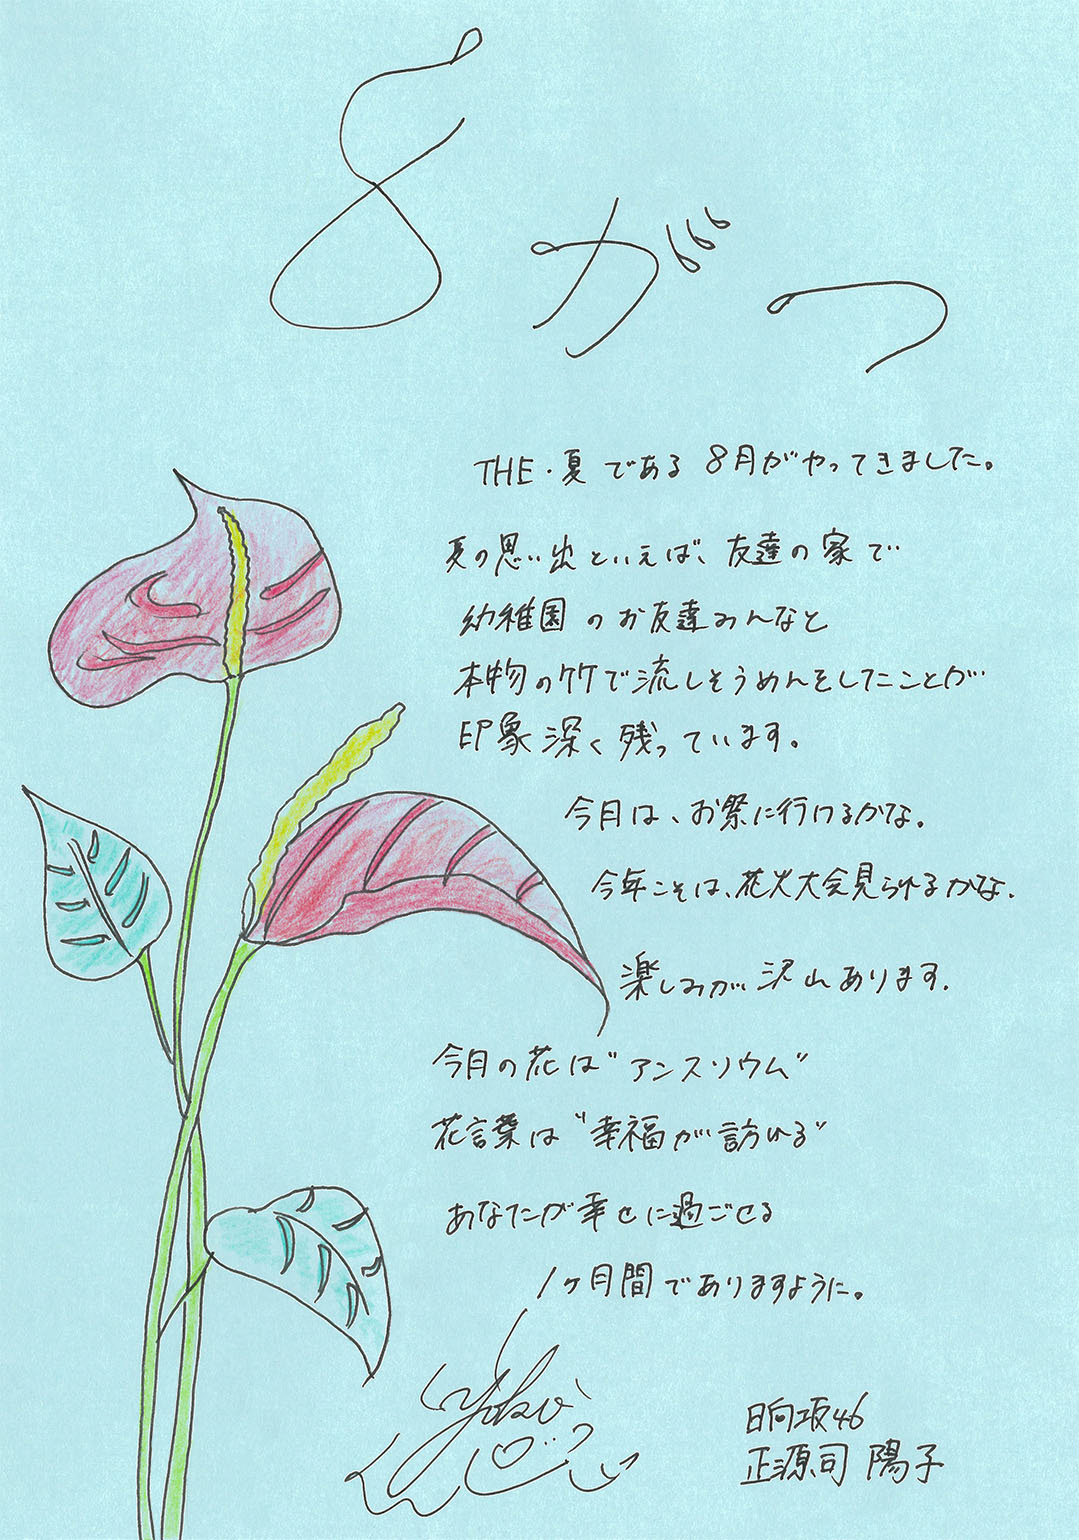 8がつ
THE・夏である 8月がやってきました。
夏の思い出といえば、友達の家で
幼稚園のお友達みんなと
本物の竹で流しそうめんをしたことが
印象深く残っています。
今月は、お祭に行けるかな。
今年こそは、花火大会見られるかな.
楽しみが沢山あります.
今月の花は"アンスリウム"
花言葉は"幸福が訪れる"
あなたが幸せに過ごせる
1ヶ月間でありますように。
Yoko
日向坂46
正源司 陽子